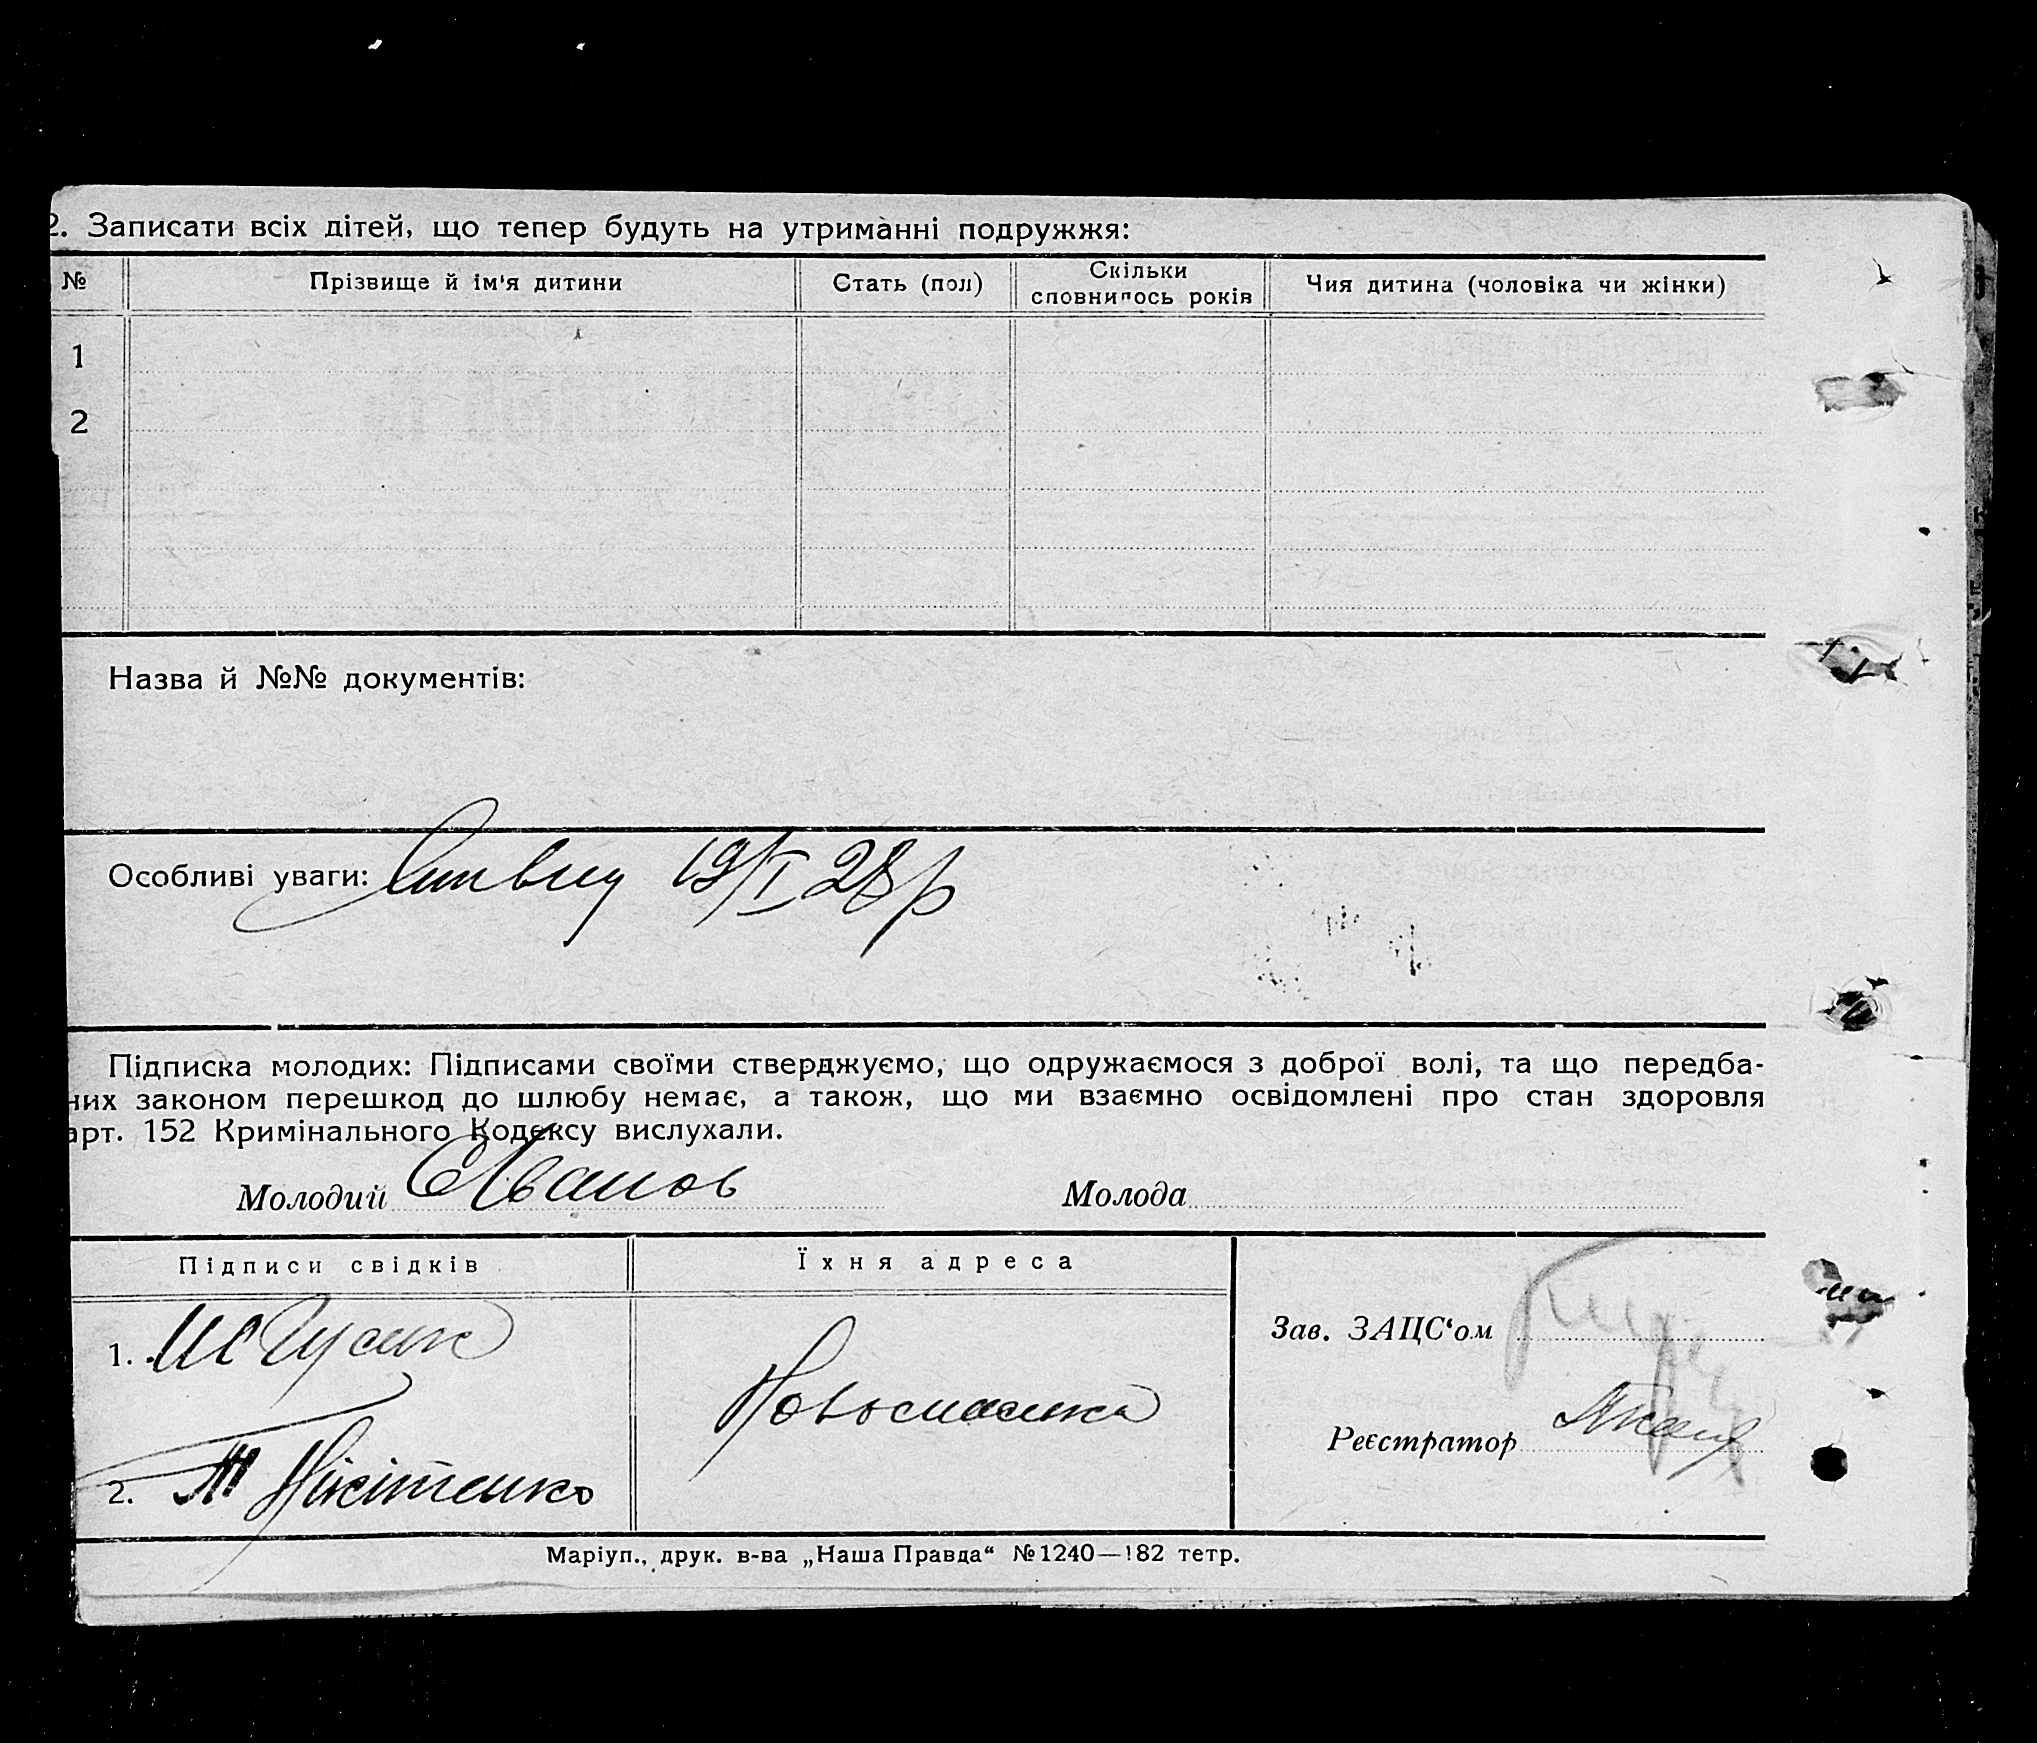 2. Записати всіх дітей, що тепер будуть на утриманні подружжя:
№ Прізвище й ім'я дитини Стать (пол) Скільки сповнилось років Чия дитина (чоловіка чи жінки)
1
2
Назва й №№ документів:
Особливі уваги: 19/I 28 р
Підписка молодих: Підписами своїми стверджуємо, що одружаємося з доброї волі, та що передба-
них законом перешкод до шлюбу немає, а також, що ми взаємно освідомлені про стан здоровля
арт. 152 Кримінального Кодексу вислухали.
Молодий Иванов Молода
Підписи свідків Їхня адреса
Зав. ЗАЦС‘ом
1.
Реєстратор
2. Нікітенко
Маріуп., друк. в-ва „Наша Правда“ №1240—182 тетр.